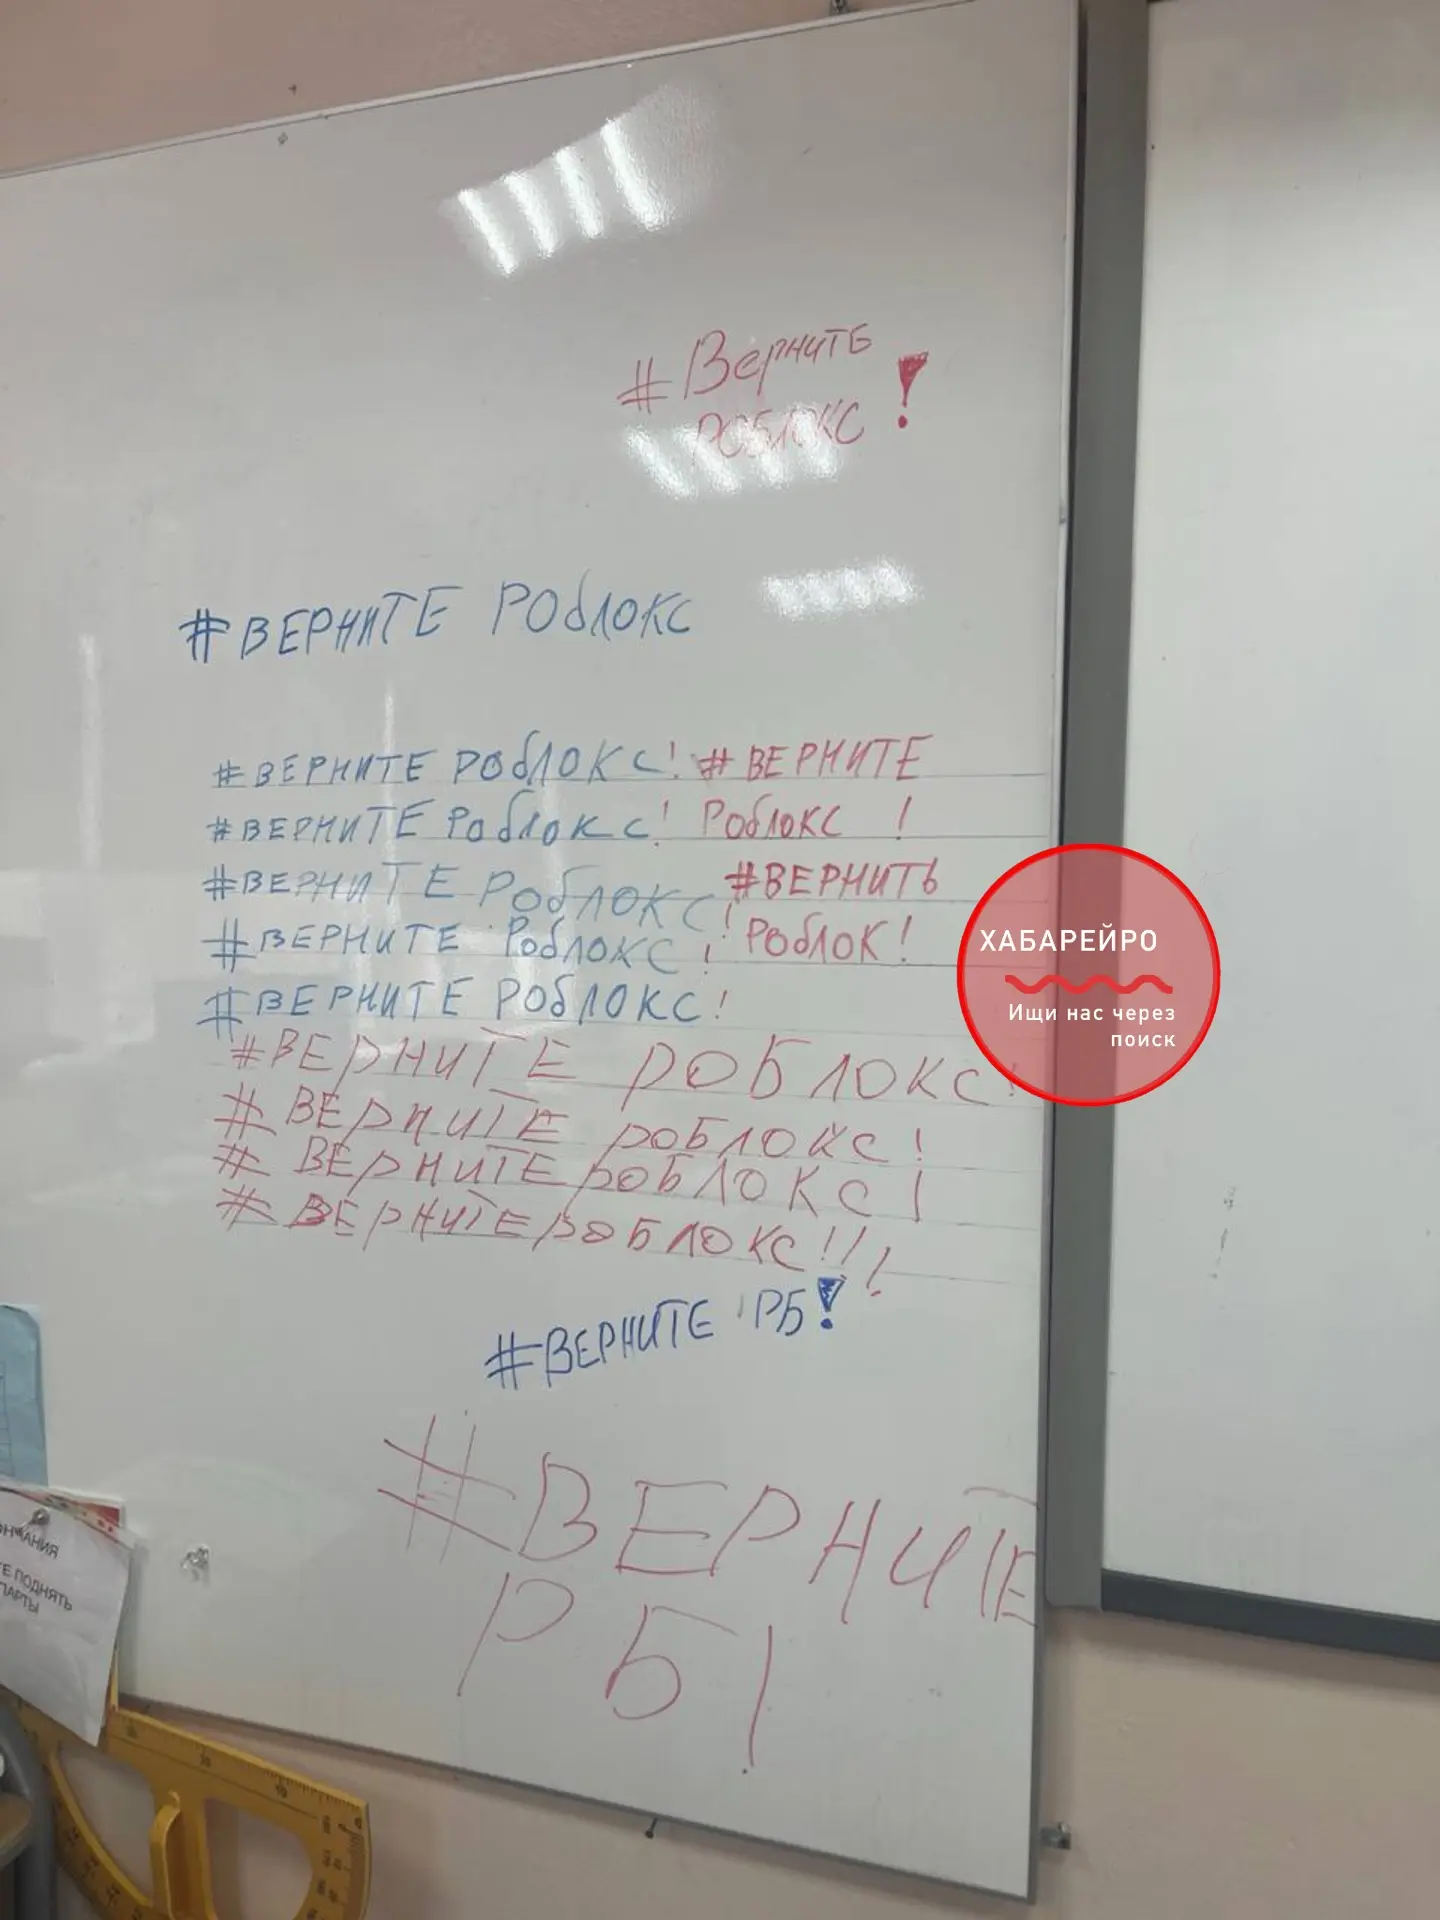 #Верните
РОБЛОКС!
#ВЕРНИТЕ РОБЛОКС
#ВЕРНИТЕ РОБЛОКС! #ВЕРНИТЕ
#ВЕРНИТЕ РОБЛОКС! РОБЛОКС !
#ВЕРНИТЕ РОБЛОКС! #ВЕРНИТЬ
#ВЕРНИТЕ РОБЛОКС! РОБЛОК!
#ВЕРНИТЕ РОБЛОКС!
#ВЕРНИТЕ РОБЛОКС!
#ВЕРНИТЕ РОБЛОКС!
#ВЕРНИТЕ РОБЛОКС!
#ВЕРНИТЕ РОБЛОКС!!!
#ВЕРНИТЕ РБ!
#ВЕРНИТЕ
РБ!
ХАБАРЕЙРО
Ищи нас через
поиск
ПОДНЯТЬ
ПАРТЫ